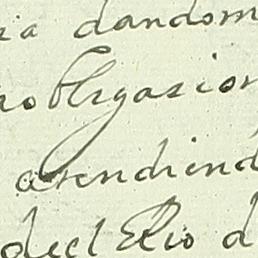 ra dandom
nobligasion
arendiend
decl Rio d